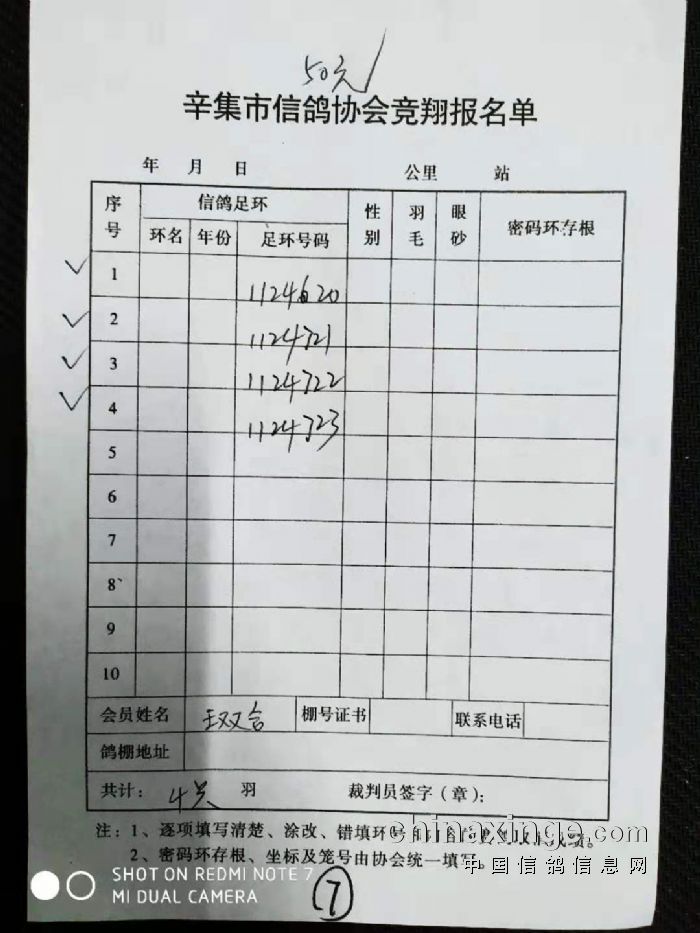 50元
辛集市信鸽协会竞翔报名单
年 月 日 公里 站
序号 信鸽足环 性别 羽毛 眼砂 密码环存根
环名 年份 足环号码
1 1124620
2 1124721
3 1124722
4 1124723
5
6
7
8
9
10
会员姓名 王双合 棚号证书 联系电话
鸽棚地址
共计： 4 羽 裁判员签字（章）：
注：1、逐项填写清楚、涂改、错填环号
2、密码环存根、坐标及笼号由协会统一填写。
chinaxinge.com
中国信鸽信息网
SHOT ON REDMI NOTE 7
MI DUAL CAMERA
7